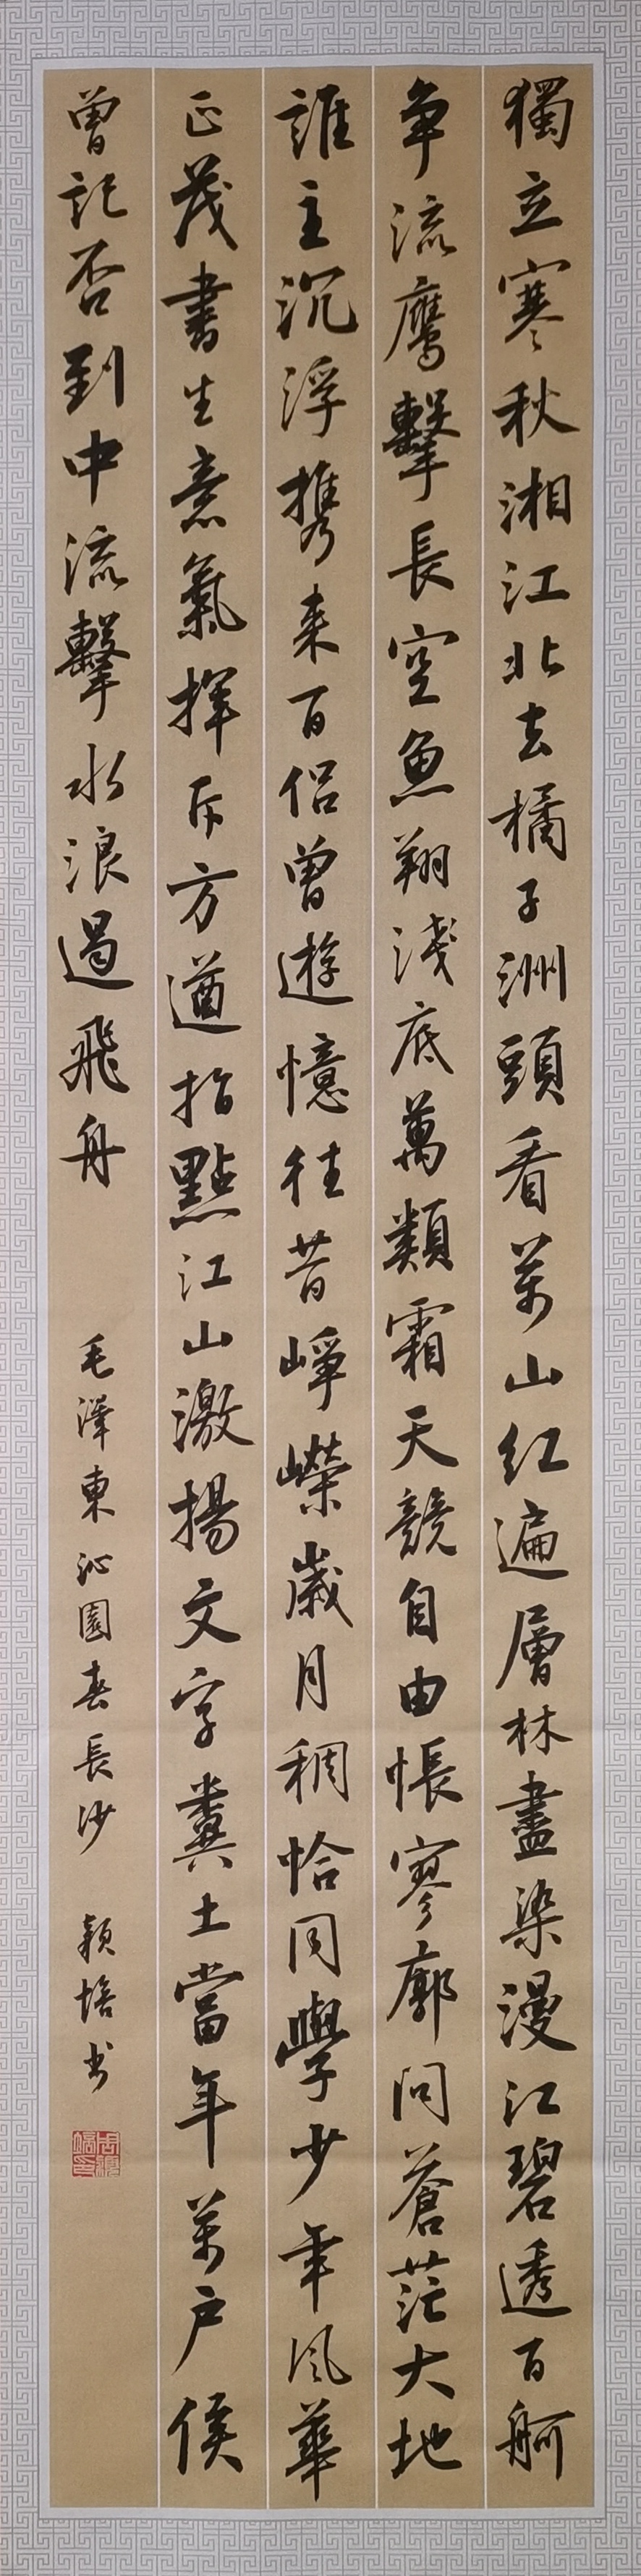 獨立寒秋湘江北去橘子洲頭看萬山紅遍層林盡染漫江碧透百舸
争流鷹擊長空魚翔淺底萬類霜天競自由悵寥廓問蒼茫大地
誰主沉浮携来百侣曾遊憶往昔崢嶸歲月稠恰同學少年風華
正茂書生意氣揮斥方遒指點江山激揚文字糞土當年萬户侯
曾記否到中流擊水浪遏飛舟 毛澤東沁園春長沙 穎培书